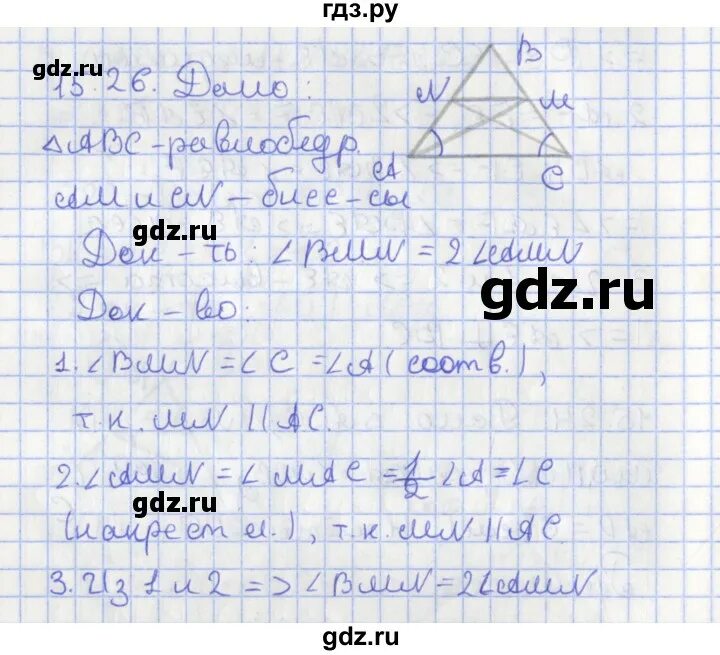 гдз.ру
gdz.ru
15.26. Дано:
B
N
M
A
C
△ABC - равнобедр.
AM и CN - бисс-сы
gdz.ru
Док-ть: ∠BMN = 2∠AMN
gdz.ru
Док-во:
1. ∠BMN = ∠C = ∠A (соотв.),
gdz.ru
т.к. MN || AC.
2. ∠AMN = ∠MAC = 1/2 ∠A = ∠C
gdz.ru
(накрест л.), т.к. MN || AC
3. Из 1 и 2 => ∠BMN = 2∠AMN
gdz.ru